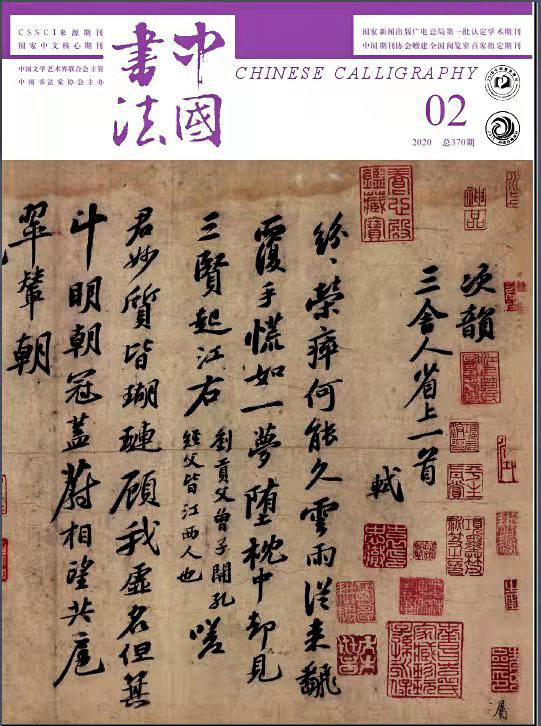 CSSCI来源期刊
国家中文核心期刊
中国文学艺术界联合会主管
中国书法家协会主办
中國
書法
国家新闻出版广电总局第一批认定学术期刊
中国期刊协会赠建全国阅览室百家指定期刊
CHINESE CALLIGRAPHY
02
2020 总370期
次韻
三舍人省上一首
軾
紛〻榮瘁何能久雲雨從来翻
覆手慌如一夢墮枕中却見
三賢起江右
劉貢父曾子開孔
經父皆江西人也
嗟
君妙質皆瑚璉顧我虛名但箕
斗明朝冠蓋蔚相望共扈
翠輦朝
養心殿鑑藏寶
神品